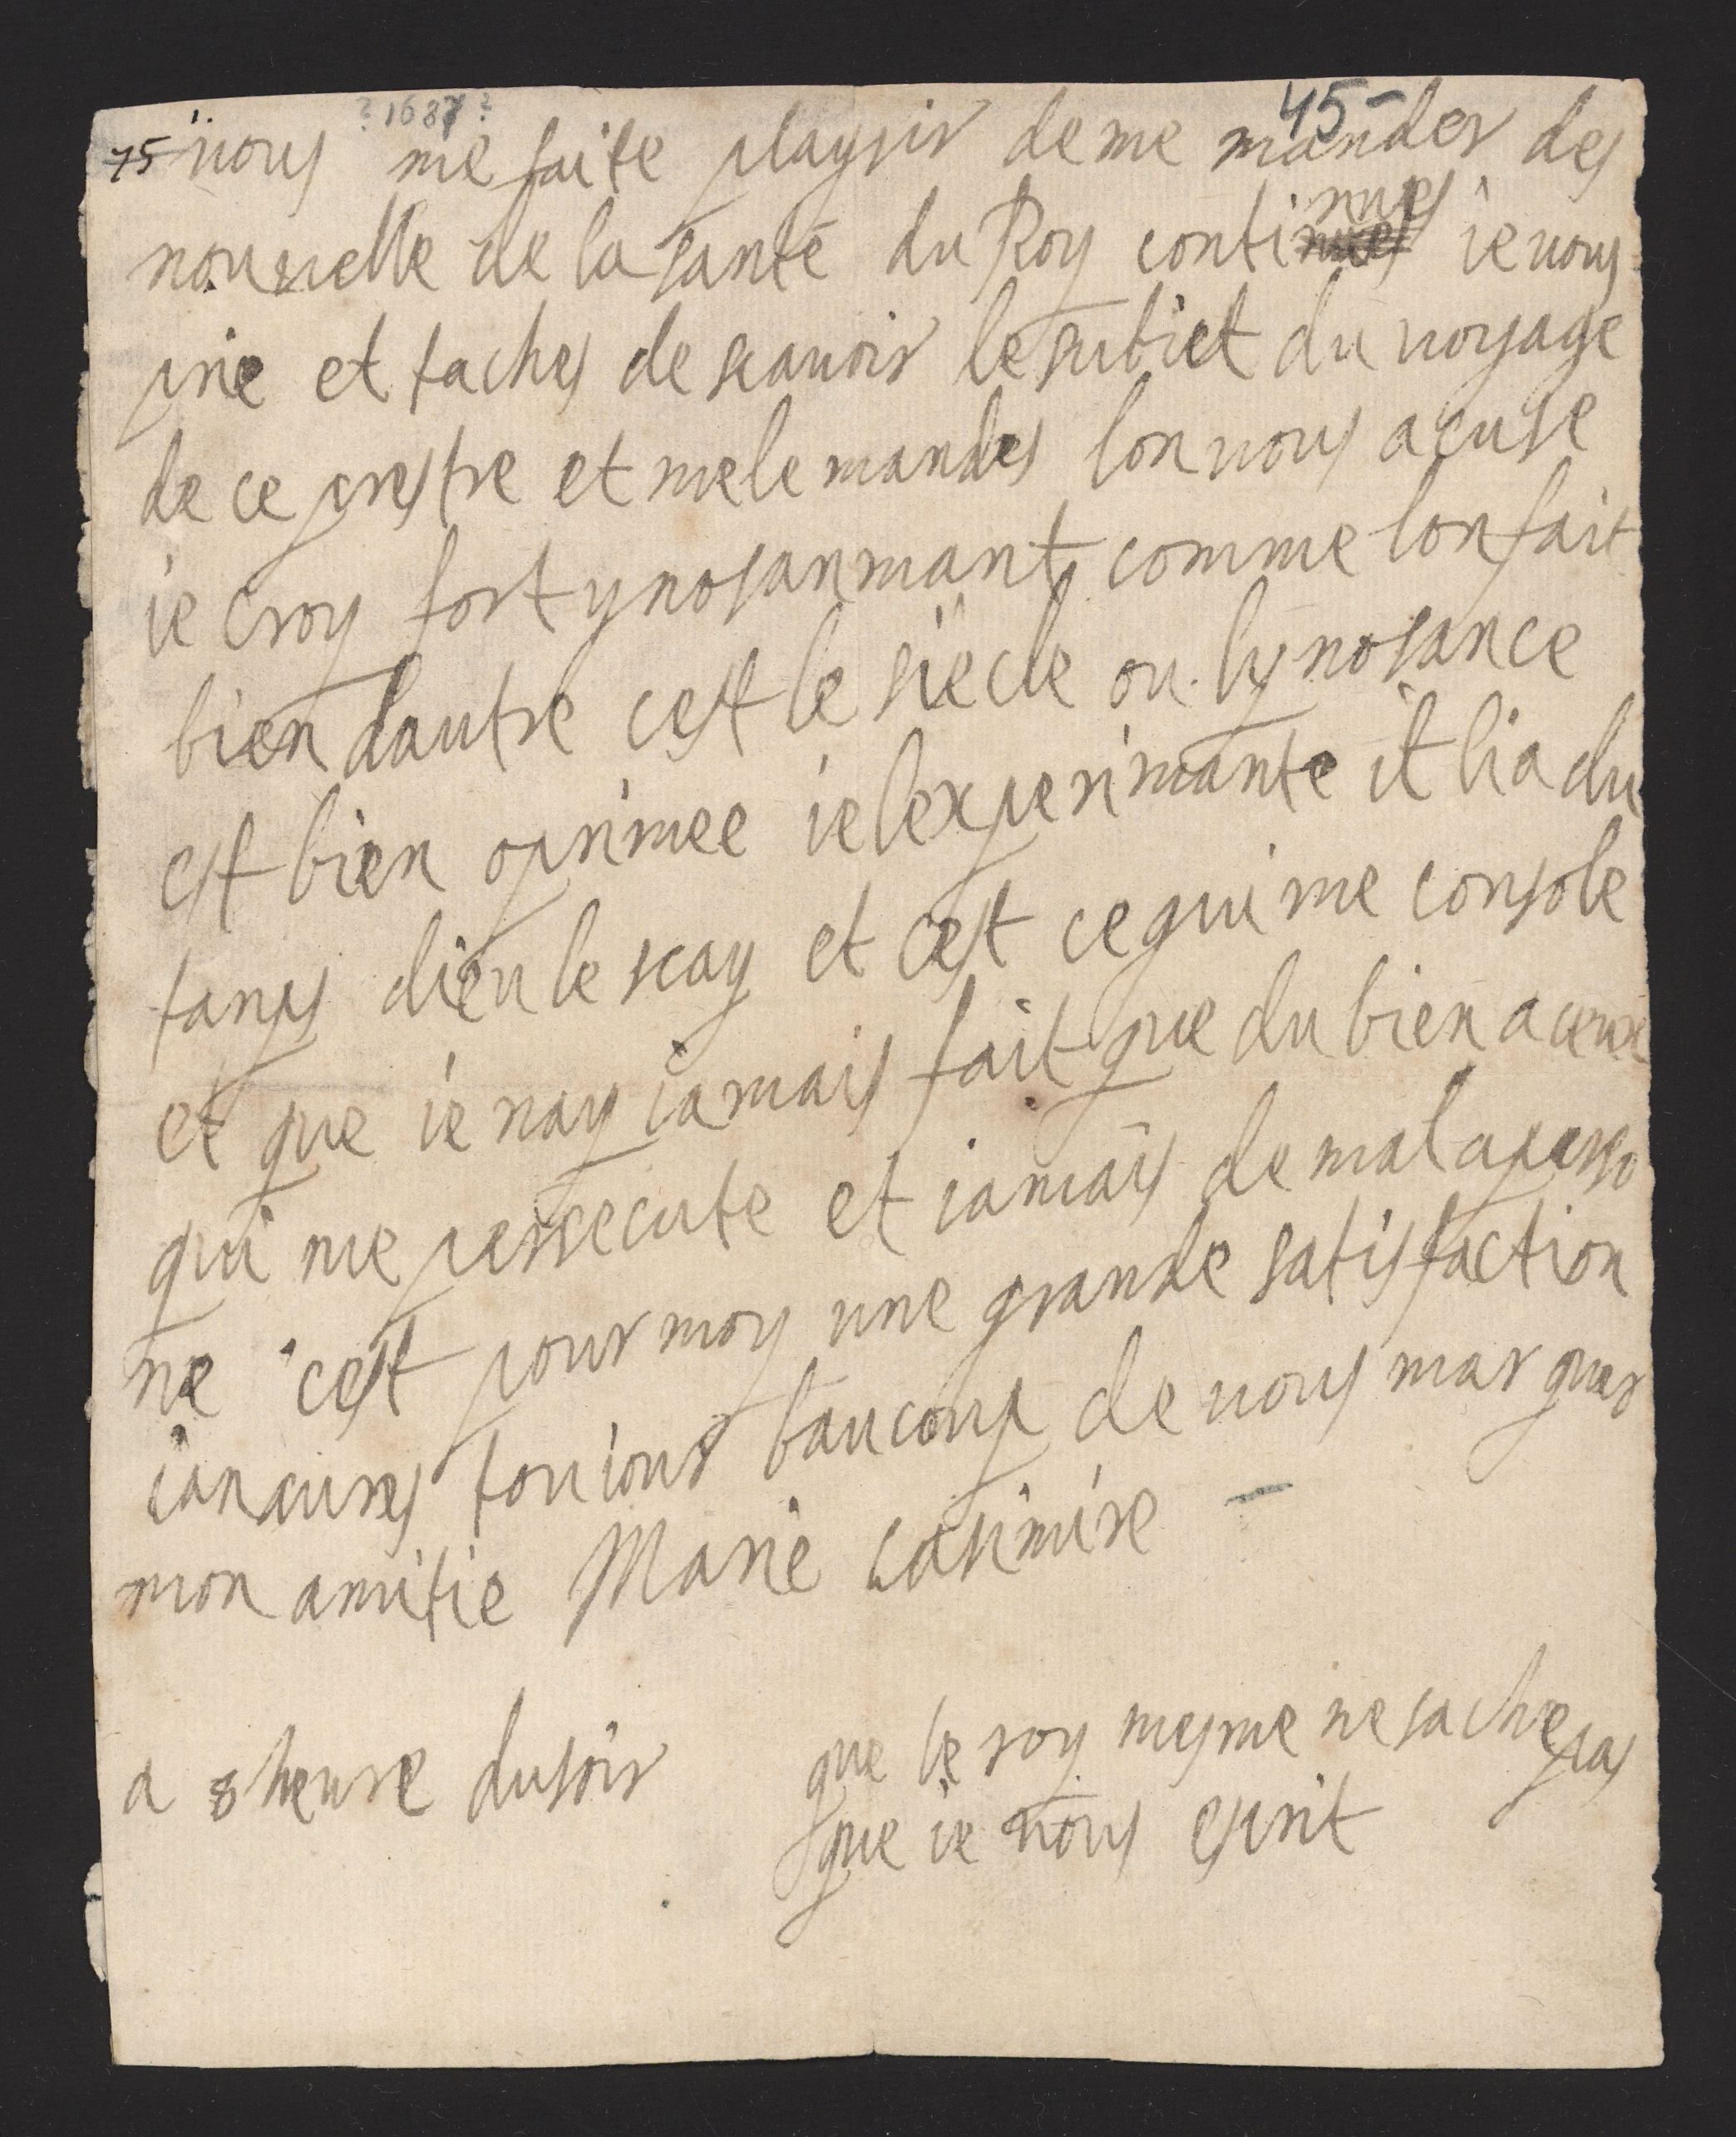 ? 1687 ?
45-
75 vous me faite playsir de me mander des
nouvelle de la santé du Roy continués ie vous
prie et taches de scauoir le subiet du uoyage
de ce prestre et me le mandes lon uous acuse
ie croy fort ynosanmant comme lon fait
bien dautre cest le siecle ou lynosance
est bien oprimee ie lexperimante il lia du
tanps dieu le scay et cest ce qui me console
et que ie nay iamais fait que du bien a ceux
qui me persecute et iamais de mal a perso
ne cest pour moy une grande satisfaction
iancures touiour baucoup de uous marquer
mon amitie Marie Casimire
a 8 heure du soir
que le roy mesme ne sache pas
que ie uous escrit